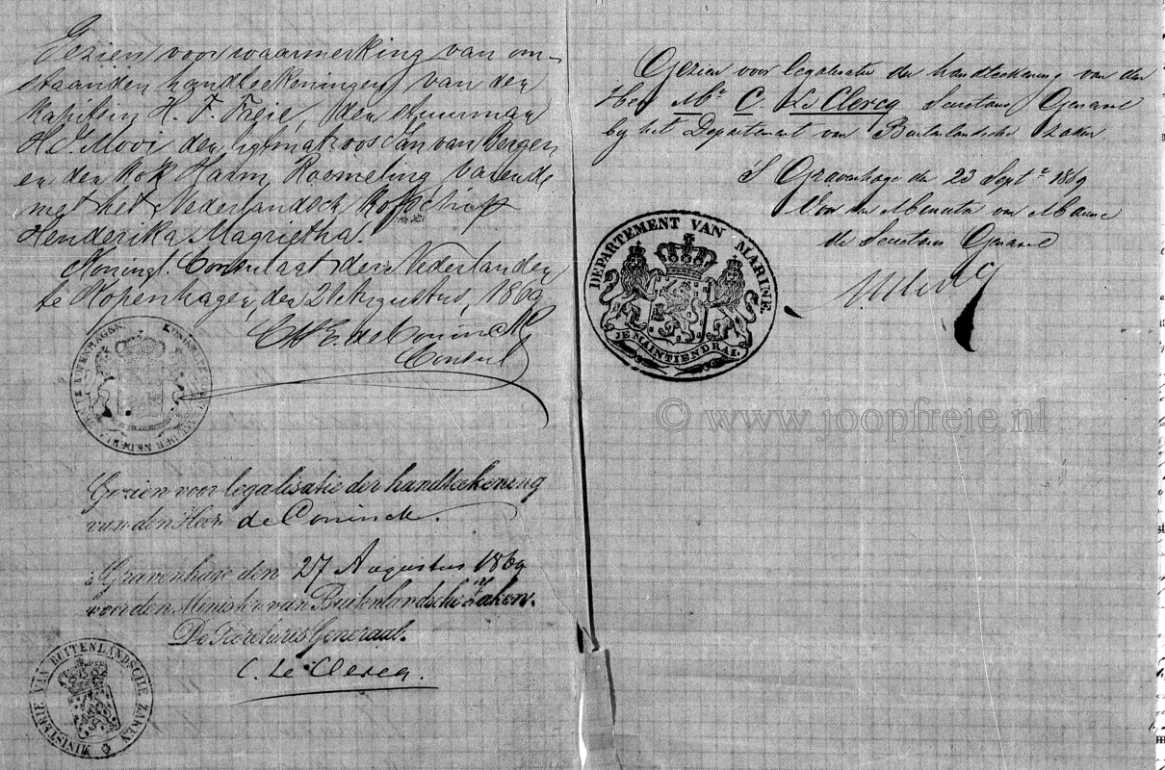 Gezien voor waarmerking van om-
staanden handteekeningen van den
Kapitein H. F. Freie, den stuurman
H. J. Mooi den ligtmatroos Jan van Bergen
en den Kok Harm Roemeling varende
met het Nederlandsch Kofschip
Henderika Magrietha.
Koningl. Consulaat der Nederlanden
te Kopenhagen, den 21 Augustus, 1869
de Coninck
Consul
Gezien voor legalisatie der handteekening
van den Heer de Coninck.
's Gravenhage den 27 Augustus 1869
voor den Minister van Buitenlandsche Zaken.
De Secretaris Generaal.
C. Le Clercq.
MINISTERIE VAN BUITENLANDSCHE ZAKEN
Gezien voor legalisatie der handteekening van den
Heer Mr. C. Le Clercq Secretaris Generaal
bij het Departement van Buitenlandsche Zaken
's Gravenhage den 23 Sept. 1869
Voor den Minister van Marine
de Secretaris Generaal
DEPARTEMENT VAN MARINE.
JE MAINTIENDRAI
© www.joopfreie.nl